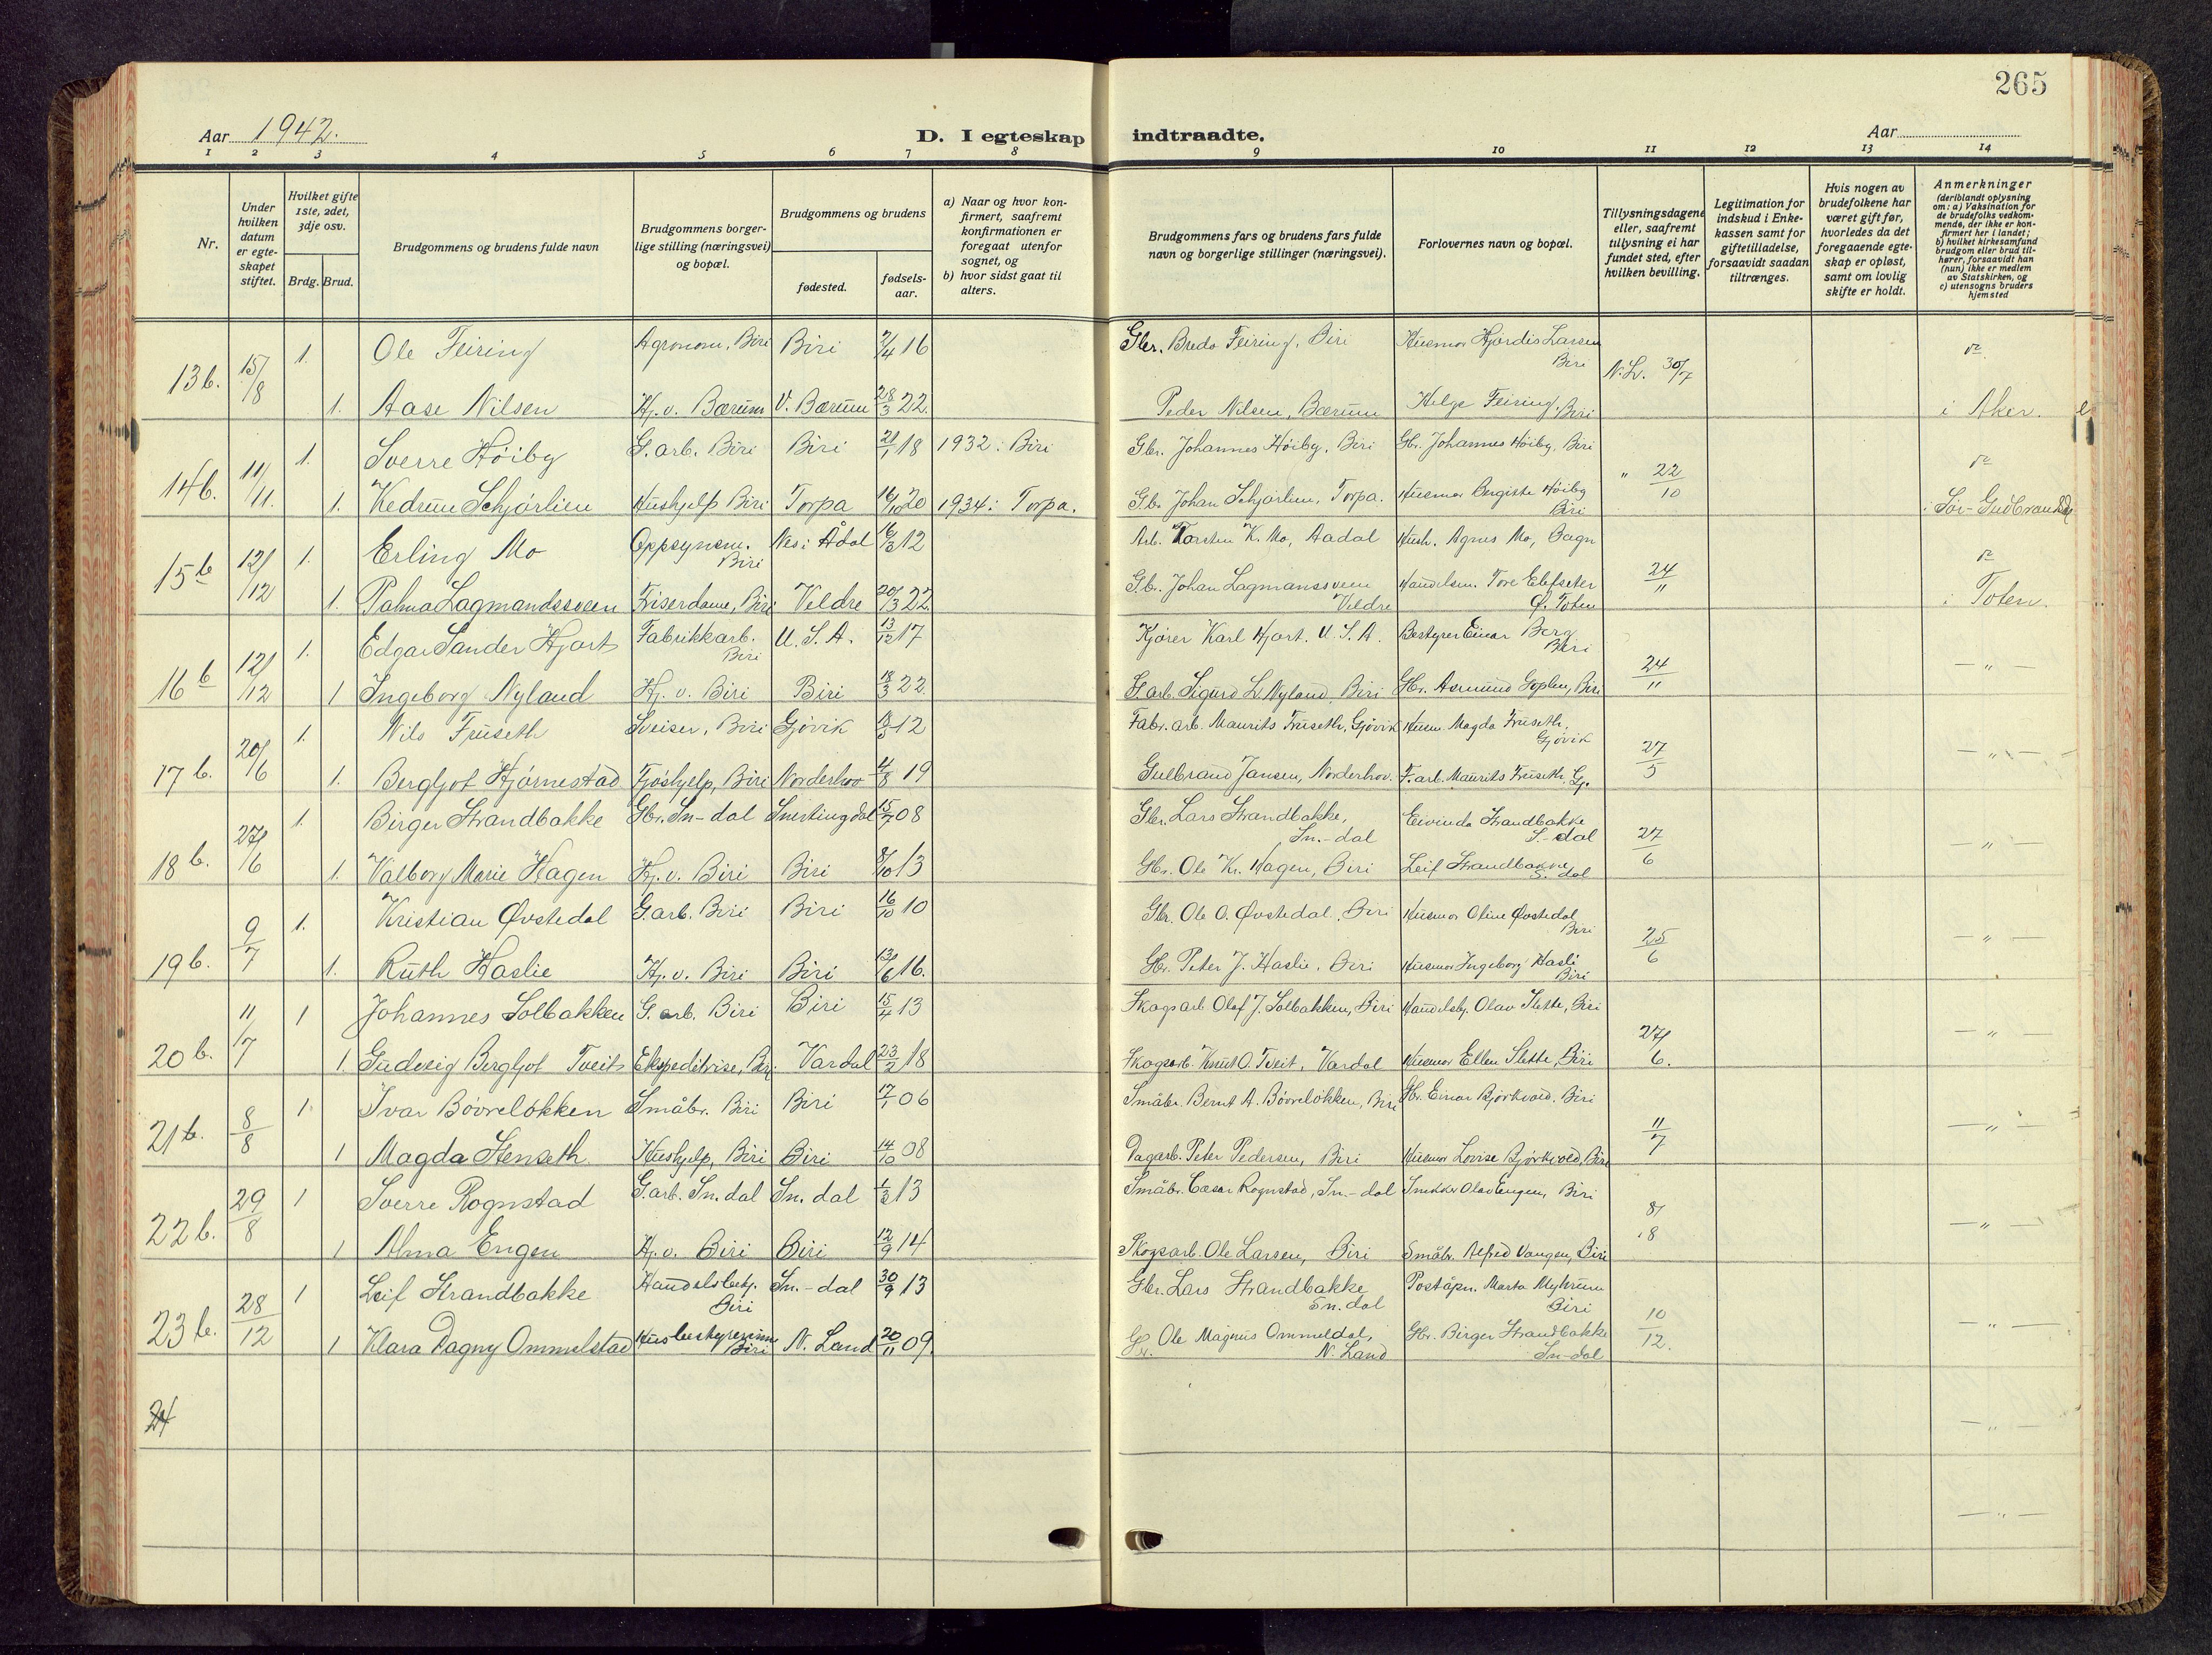 265
Aar 1942.
D. I egteskap indtraadte.
Aar
1 2 3 4 5 6 7 8 9 10 11 12 13 14
Nr.
Under hvilken datum er egte-skapet stiftet.
Hvilket gifte 1ste, 2det, 3dje osv.
Brdg. Brud.
Brudgommens og brudens fulde navn
Brudgommens borger-lige stilling (næringsvei) og bopæl.
Brudgommens og brudens
fødested.
fødsels-aar.
a) Naar og hvor kon-firmert, saafremt konfirmationen er foregaat utenfor sognet, og
b) hvor sidst gaat til alters.
Brudgommens fars og brudens fars fulde navn og borgerlige stillinger (næringsvei).
Forlovernes navn og bopæl.
Tillysningsdagene eller, saafremt tillysning ei har fundet sted, efter hvilken bevilling.
Legitimation for indskud i Enke-kassen samt for giftetilladelse, forsaavidt saadan tiltrænges.
Hvis nogen av brudefolkene har været gift før, hvorledes da det foregaaende egte-skap er opløst, samt om lovlig skifte er holdt.
Anmerkninger (deriblandt oplysning om: a) Vaksination for de brudefolks vedkom-mende, der ikke er kon-firmert her i landet; b) hvilket kirkesamfund brudgom eller brud til-hører, forsaavidt han (hun) ikke er medlem av Statskirken, og c) utensogns bruders hjemsted
13 b. 15/8 1. Ole Feiring Agronom, Biri Biri 2/4 16 Gbr. Bredo Feiring, Biri Husmor Hjørdis Larsen Biri N.L. 30/7
1. Aase Nilsen Hj. v. Bærum V. Bærum 28/3 22 Peder Nilsen, Bærum Helge Feiring, Biri i Aker.
14 b. 11/11. 1. Sverre Høiby G. arb. Biri Biri 21/1 18 1932: Biri Gbr. Johannes Høiby, Biri Gbr. Johannes Høiby, Biri " 22/10
1. Kedrun Schjørlien Hushjelp Biri Torpa 16/10 20 1934: Torpa. Gb. Johan Schjørlien, Torpa. Husmor Bergitte Høiby Biri
15 b 12/12 1. Erling Mo Oppsynsm. Biri Nes i Ådal 16/3 12 Arb. Torsten K. Mo, Aadal Hush. Agnes Mo, Bagn 24/11
1. Palma Lagmandssveen Friserdame, Biri Veldre 20/3 22 Gb. Johan Lagmanssveen Veldre Handelsm. Tore Elefseter Ø. Toten i Toten.
16 b 12/12 1. Edgar Sander Hjort Fabrikkarb. Biri U. S. A. 13/12 17 Kjører Karl Hjort. U. S. A. Bestyrer Einar Berg Biri 24/11 — " —
1 Ingeborg Nyland Hj. v. Biri Biri 18/3 22 S. arb. Sigurd L. Nyland, Biri Gbr. Asmund Goplen, Biri
17 b. 20/6 1. Nils Fruseth Sveiser, Biri Gjøvik 12 Fabr. arb. Maurits Fruseth, Gjøvik Husm. Magda Fruseth, Gjøvik 27/5 — " —
1. Bergljot Hjørnestad Fjøshjelp, Biri Norderhov 4/8 19 Gulbrand Jansen, Norderhov. F. arb. Maurits Fruseth, Gj.
18 b. 27/6 1. Birger Strandbakke Gbr. Sn-dal Snertingdal 15/7 08 Gbr. Lars Strandbakke, Sn.-dal Eivinda Strandbakke S-dal 27/6 — " —
1. Valborg Marie Hagen Hj. v. Biri Biri 8/10 13 Gbr. Ole Kr. Hagen, Biri Leif Strandbakke S. dal
19 b. 9/7 1. Kristian Øvstedal G. arb. Biri Biri 16/10 10 Gbr. Ole O. Øvstedal, Biri Husmor Oline Øvstedal Biri 25/6 — " —
1. Ruth Haslie Hj. v. Biri Biri 13/6 16. Gbr. Peter J. Haslie, Biri Husmor Ingeborg Hasli Biri
20 b. 11/7 1 Johannes Solbakken G. arb. Biri Biri 15/4 13 Skogsarb Olaf J. Solbakken, Biri Handelsbj. Olav Slette, Biri 27/6. — " —
1. Gudveig Bergljot Tveit Ekspeditrise, Biri Vardal 23/2 18 Skogsarb. Knut O. Tveit, Vardal Husmor Ellen Slette, Biri
21 b. 8/8 1. Ivar Bøvreløkken Småbr. Biri Biri 17/1 06 Småbr. Bernt A. Bøvreløkken, Biri Gbr. Einar Bjørkvold, Biri 11/7 — " —
1 Magda Stenseth Hushjelp, Biri Biri 14/10 08 Dagarb. Peter Pedersen, Biri Husmor Lovise Bjørkvold, Biri
22 b. 29/8 1 Sverre Rognstad G. arb. Sn. dal Sn. dal 1/3 13 Småbr. Cæsar Rognstad, Sn.-dal Snekker Olav Engen, Biri 8/8 — " —
1 Alma Engen Hj. v. Biri Biri 12/9 14 Skogsarb. Ole Larsen, Biri Småbr. Alfred Vangen, Biri
23 b. 28/12 1 Leif Strandbakke Handelsbetj. Biri Sn.-dal 30/9 13 Gbr. Lars Strandbakke Sn. dal Poståpn. Marta Myhrum Biri 10/12. — " —
1 Klara Dagny Ommelstad Husbestyrerinne Biri N. Land 20/11 09. Gbr. Ole Magnus Ommeldal, N. Land Gbr. Birger Strandbakke Sn-dal
24 — " —
— " —